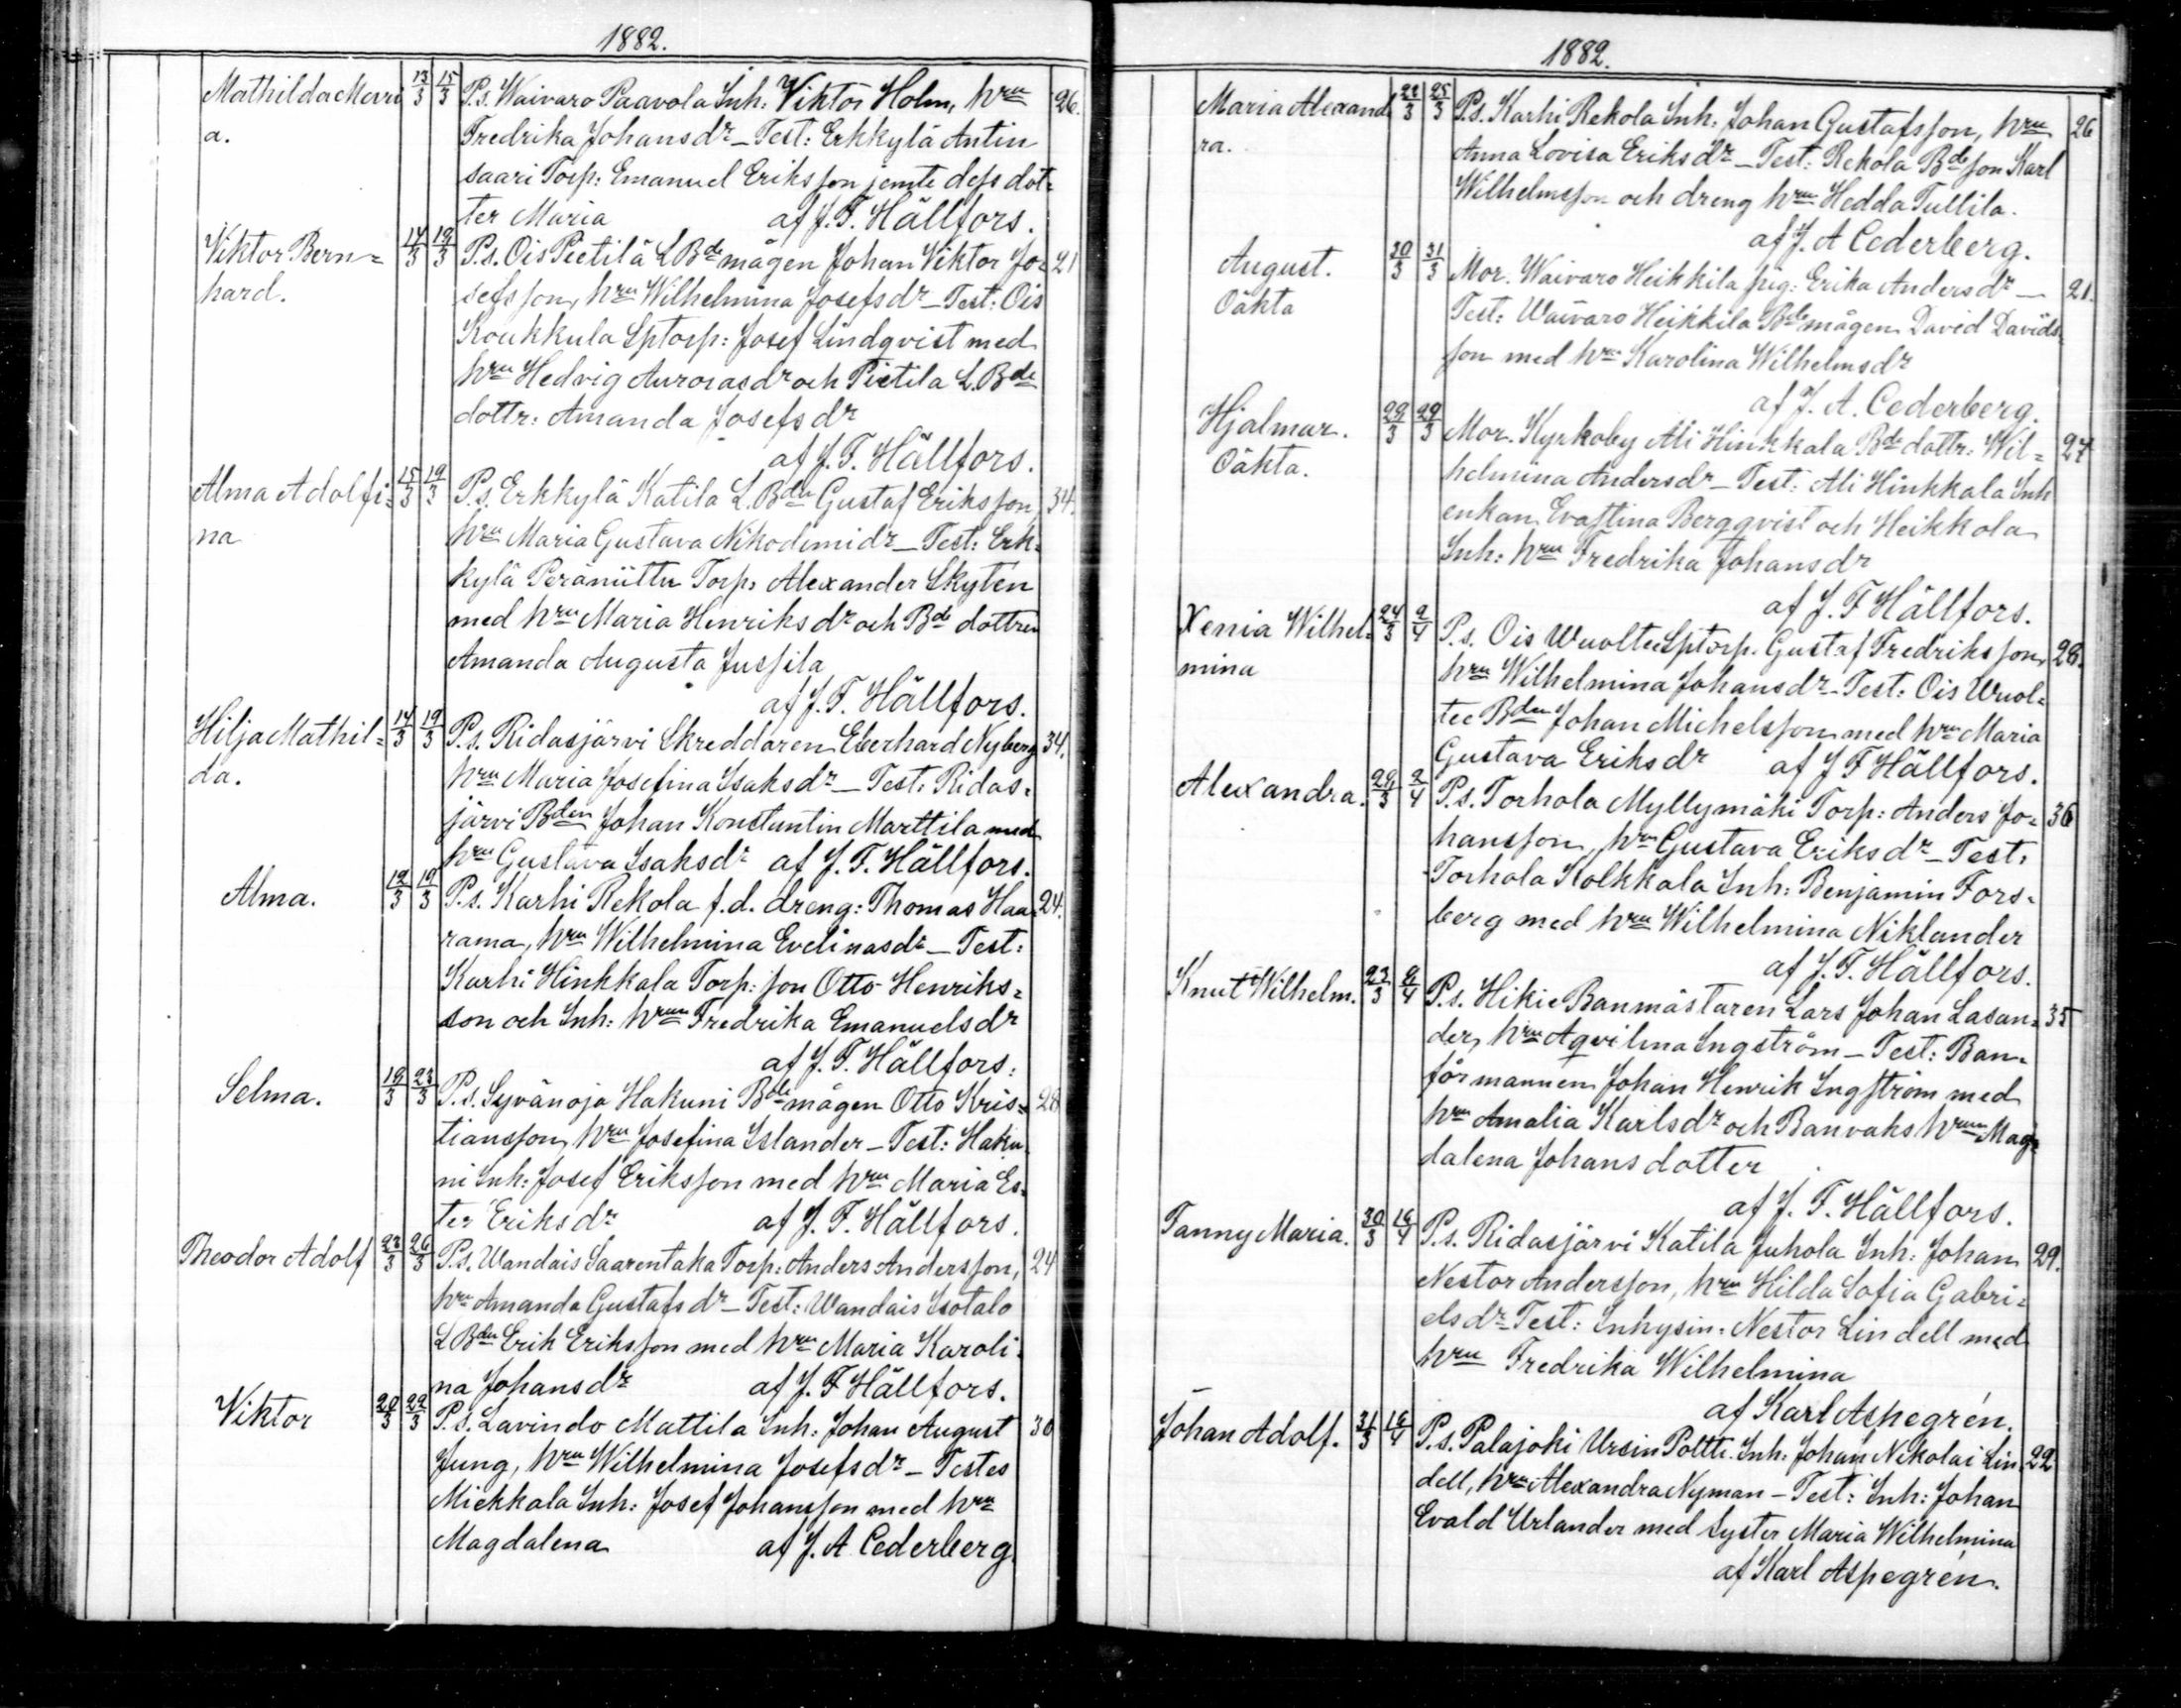 1882.
Mathilda Mari 13/3 15/3 P.s. Waivaro Paavola Inh: Viktor Holm, hru 26.
a. Fredrika Johansdr – Test: Erkkylä Antin
saari Torp: Emanuel Eriksson jemte dess dot=
ter Maria af J. F. Hällfors.
Viktor Bern= 14/3 19/3 P.s. Ois Pietilä L Bde mågen Johan Viktor Jo= 21
hard. sefsson, hru Wilhelmina Josefsdr – Test: Ois
Koukkula Sptorp: Josef Lindqvist med
hru Hedvig Aurorasdr och Pietila L. Bde
dottr: Amanda Josefsdr
af J. F. Hällfors.
Alma Adolfi= 15/3 19/3 P.s. Erkkylä Katila L. Bdn Gustaf Eriksson 34.
na hru Maria Gustava Nikodemidr – Test: Erk=
kylä Peräniittu Torp: Alexander Skytén
med hru Maria Henriksdr och Bde dottren
Amanda Augusta Jussila
af J. F. Hällfors.
Hilja Mathil= 14/3 19/3 P.s. Ridasjärvi Skreddaren Eberhard Nyberg 34.
da. hru Maria Josefina Isaksdr – Test: Ridas=
järvi Bden Johan Konstantin Marttila med
hru Gustava Isaksdr af J. F. Hällfors.
Alma. 12/3 19/3 P.s. Karhi Rekola f.d. dreng: Thomas Haa= 24.
rama, hru Wilhelmina Evelinasdr – Test:
Karhi Hinkkala Torp: son Otto Henriks=
son och Inh: hrun Fredrika Emanuelsdr
af J. F. Hällfors.
Selma. 19/3 23/3 P.s. Syvänoja Hakuni Bde mågen Otto Kris= 28
tiansson, hru Josefina Islander – Test: Haku
ni Inh: Josef Eriksson med hru Maria Es=
ter Eriksdr af J. F. Hällfors.
Theodor Adolf 22/3 26/3 P.s. Wandais Saarentaka Torp: Anders Andersson, 24
hru Amanda Gustafsdr – Test: Wandais Isotalo
L Bdn Erik Eriksson med hru Maria Karoli=
na Johansdr af J. F Hällfors.
Viktor 20/3 22/3 P.s. Lavindo Mattila Inh: Johan August 30
Jung, hru Wilhelmina Josefsdr – Testes
Miekkala Inh: Josef Johansson med hru
Magdalena af J. A Cederberg
1882.
Maria Alexand 22/3 25/3 P.s. Karhi Rekola Inh: Johan Gustafsson, hru 26
ra. Anna Lovisa Eriksdr – Test: Rekola Bde son Karl
Wilhelmsson och dreng hru Hedda Tullila.
af J. A Cederberg.
August. 30/3 31/3 Mor. Waivaro Heikkila pig: Erika Andersdr – 21.
Oäkta Test: Waivaro Heikkila Bde mågen David Davids=
son med hru Karolina Wilhelmsdr
af J. A. Cederberg.
Hjalmar. 29/3 29/3 Mor. Kyrkoby Ali Hinkkala Bde dottr: Wil= 27
Oäkta. helmina Andersdr – Test: Ali Hinkkala Inh
enkan Evastina Bergqvist och Heikkola
Inh: hru Fredrika Johansdr
af J. F Hällfors.
Xenia Wilhel= 24/3 2/4 P.s. Ois Wuoltee Sptorp. Gustaf Fredriksson, 28.
mina hru Wilhelmina Johansdr – Test: Ois Wuol=
tee Bden Johan Michelsson med hru Maria
Gustava Eriksdr af J F Hällfors.
Alexandra. 29/3 2/4 P.s. Torhola Myllymäki Torp: Anders Jo= 36
hansson, hru Gustava Eriksdr – Test:
Torhola Kolkkala Inh: Benjamin Fors=
berg med hru Wilhelmina Niklander
af J. F. Hällfors.
Knut Wilhelm. 23/3 9/4 P.s. Hikie Banmästaren Lars Johan Lasan= 35
der, hru Aqvilina Ingström – Test: Ban=
förmannen Johan Henrik Ingström med
hru Amalia Karlsdr och Banvaks hrun Mag=
dalena Johansdotter
af J. F. Hällfors.
Fanny Maria. 30/3 16/4 P.s. Ridasjärvi Katila Juhola Inh: Johan 29.
Nestor Andersson, hru Hilda Sofia Gabri=
elsdr Test: Inhysin: Nestor Lindell med
hru Fredrika Wilhelmina
af Karl Aspegrén.
Johan Adolf. 31/3 16/4 P.s. Palajoki Ursin Poltti. Inh: Johan Nikolai Lin 22
dell, hru Alexandra Nyman – Test: Inh: Johan
Evald Urlander med Syster Maria Wilhelmina
af Karl Aspegrén.